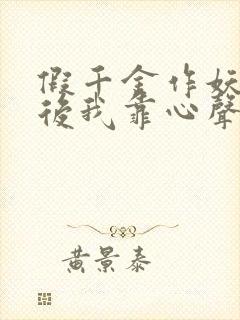 假千金作妖
後我靠心聲
黃景泰